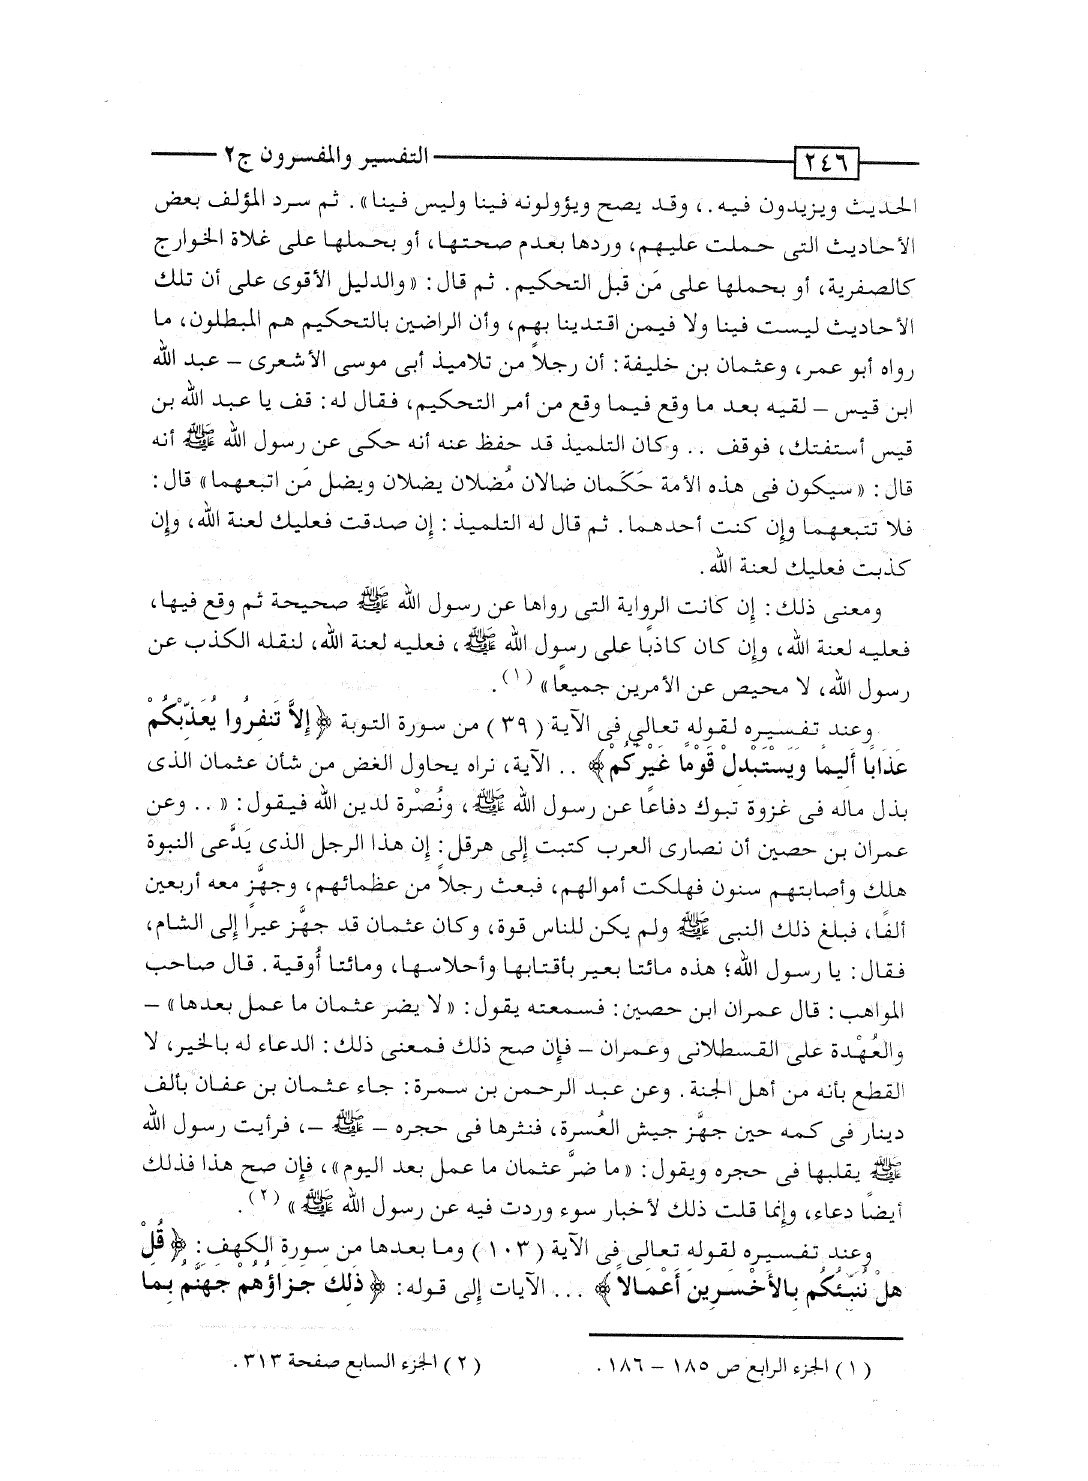 ٢٤٦ التفسير والمفسرون ج٢
الحديث ويزيدون فيه.، وقد يصح ويؤولونه فينا وليس فينا». ثم سرد المؤلف بعض
الأحاديث التى حملت عليهم، وردها بعدم صحتها، أو بحملها على غلاة الخوارج
كالصفرية، أو بحملها على مَن قبل التحكيم. ثم قال: «والدليل الأقوى على أن تلك
الأحاديث ليست فينا ولا فيمن اقتدينا بهم، وأن الراضين بالتحكيم هم المبطلون، ما
رواه أبو عمر، وعثمان بن خليفة: أن رجلاً من تلاميذ أبى موسى الأشعرى – عبد الله
ابن قيس – لقيه بعد ما وقع فيما وقع من أمر التحكيم، فقال له: قف يا عبد الله بن
قيس أستفتك، فوقف .. وكان التلميذ قد حفظ عنه أنه حكى عن رسول الله ﷺ أنه
قال: «سيكون فى هذه الأمة حَكَمان ضالان مُضلان يضلان ويضل مَن اتبعهما» قال:
فلا تتبعهما وإن كنت أحدهما. ثم قال له التلميذ: إن صدقت فعليك لعنة الله، وإن
كذبت فعليك لعنة الله.
ومعنى ذلك: إن كانت الرواية التى رواها عن رسول الله ﷺ صحيحة ثم وقع فيها،
فعليه لعنة الله، وإن كان كاذبًا على رسول الله ﷺ، فعليه لعنة الله، لنقله الكذب عن
رسول الله، لا محيص عن الأمرين جميعًا» (١).
وعند تفسيره لقوله تعالى فى الآية (٣٩) من سورة التوبة ﴿إِلاَّ تَنفِرُوا يُعَذِّبْكُمْ
عَذَابًا أَلِيمًا وَيَسْتَبْدِلْ قَوْمًا غَيْرَكُمْ﴾ .. الآية، نراه يحاول الغض من شأن عثمان الذى
بذل ماله فى غزوة تبوك دفاعًا عن رسول الله ﷺ، ونُصْرة لدين الله فيقول: « .. وعن
عمران بن حصين أن نصارى العرب كتبت إلى هرقل: إن هذا الرجل الذى يَدَّعى النبوة
هلك وأصابتهم سنون فهلكت أموالهم، فبعث رجلاً من عظمائهم، وجهَّز معه أربعين
ألفًا، فبلغ ذلك النبى ﷺ ولم يكن للناس قوة، وكان عثمان قد جهَّز عيرًا إلى الشام،
فقال: يا رسول الله؛ هذه مائتا بعير بأقتابها وأحلاسها، ومائتا أُوقية. قال صاحب
المواهب: قال عمران ابن حصين: فسمعته يقول: «لا يضر عثمان ما عمل بعدها» –
والعُهْدة على القسطلانى وعمران – فإن صح ذلك فمعنى ذلك: الدعاء له بالخير، لا
القطع بأنه من أهل الجنة. وعن عبد الرحمن بن سمرة: جاء عثمان بن عفان بألف
دينار فى كمه حين جهَّز جيش العُسرة، فنثرها فى حجره – ﷺ –، فرأيت رسول الله
ﷺ يقلبها فى حجره ويقول: «ما ضرَّ عثمان ما عمل بعد اليوم»، فإن صح هذا فذلك
أيضًا دعاء، وإنما قلت ذلك لأخبار سوء وردت فيه عن رسول الله ﷺ» (٢).
وعند تفسيره لقوله تعالى فى الآية (١٠٣) وما بعدها من سورة الكهف: ﴿قُلْ
هَلْ نُنَبِّئُكُم بِالأَخْسَرِينَ أَعْمَالاً﴾ ... الآيات إلى قوله: ﴿ذَلِكَ جَزَاؤُهُمْ جَهَنَّمُ بِمَا
(١) الجزء الرابع ص ١٨٥ – ١٨٦.
(٢) الجزء السابع صفحة ٣١٣.